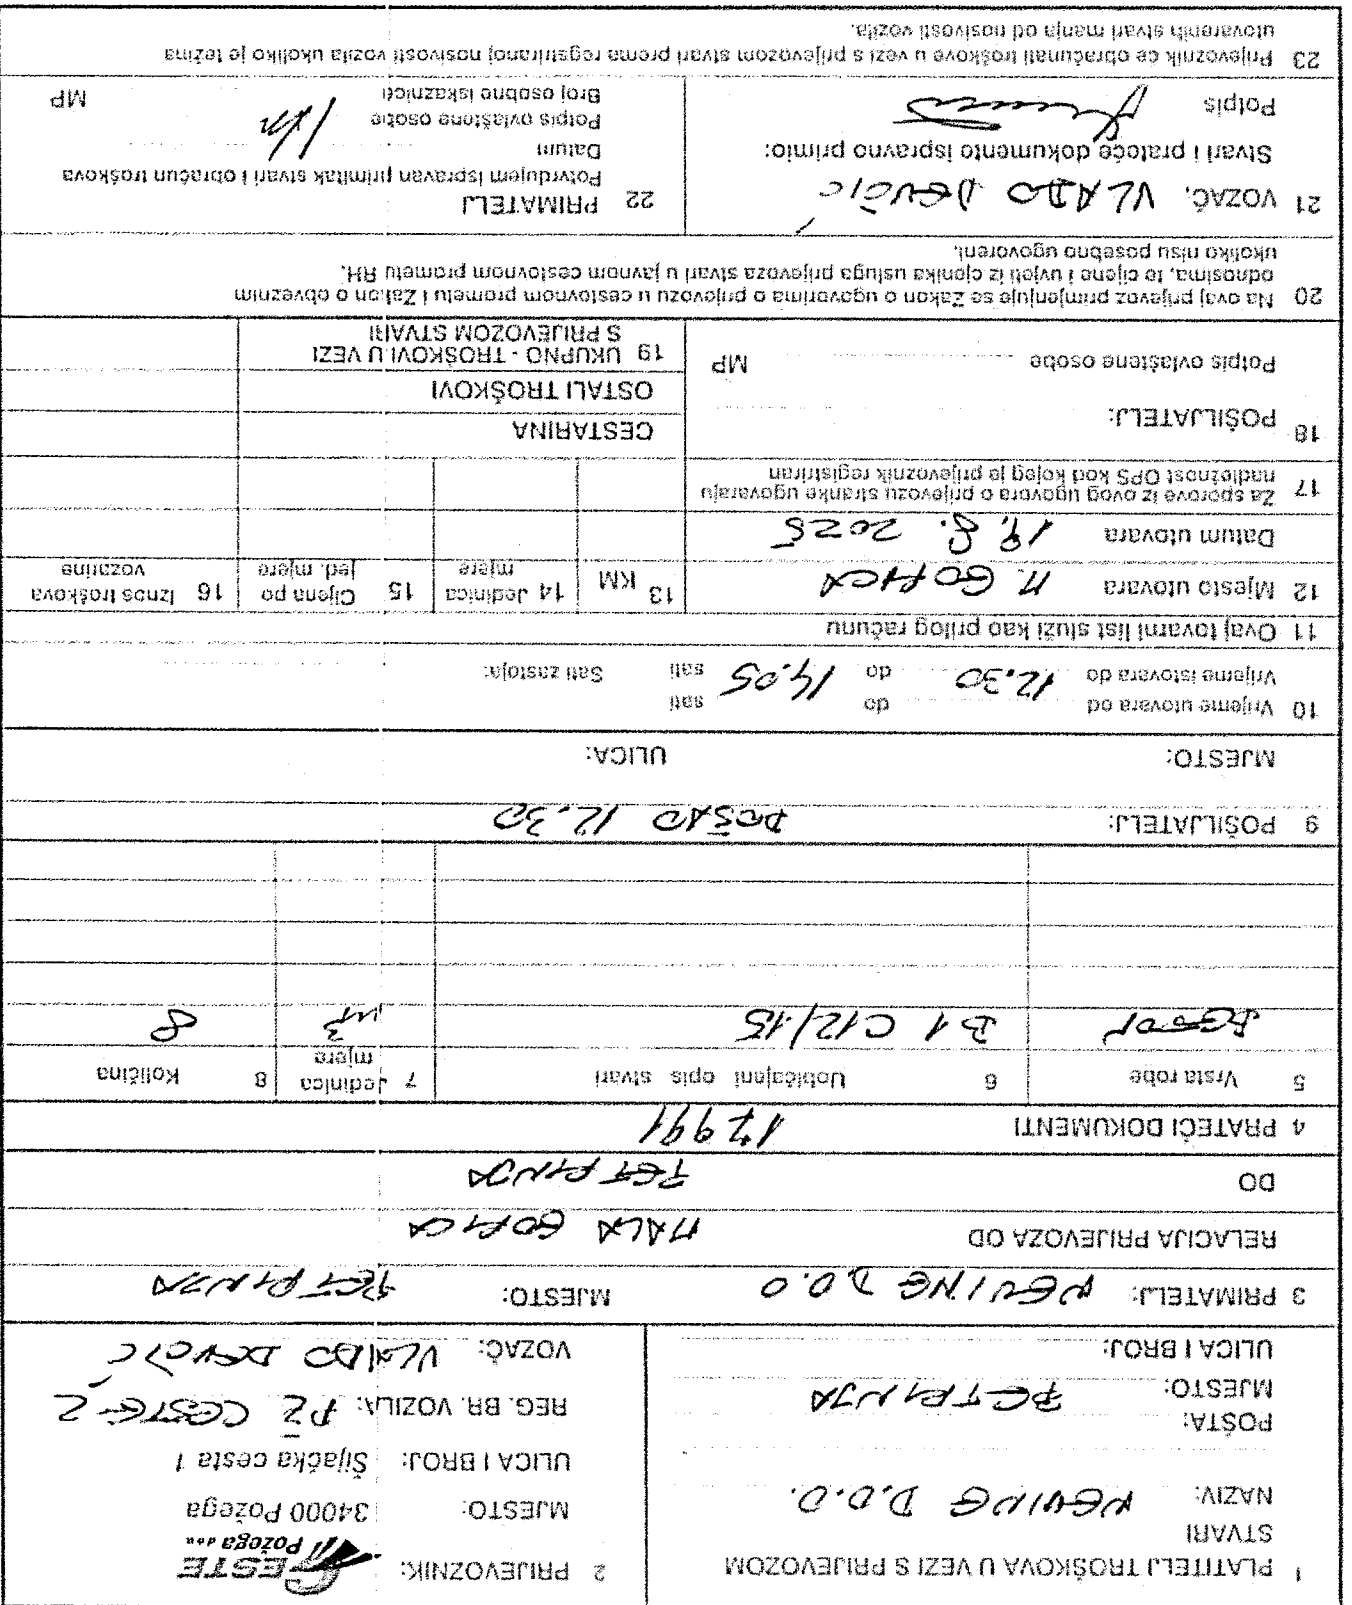 1 PLATITELJ TROŠKOVA U VEZI S PRIJEVOZOM
STVARI
NAZIV: KEVING D.O.O.
POŠTA:
MJESTO: PETRINJA
ULICA I BROJ:
2 PRIJEVOZNIK: CESTE Požega d.o.o.
MJESTO: 34000 Požega
ULICA I BROJ: Šijačka cesta 1
REG. BR. VOZILA: PŽ CESTE-2
VOZAČ: VLADO DEVČIĆ
3 PRIMATELJ: KEVING D.O.O MJESTO: PETRINJA
RELACIJA PRIJEVOZA OD MALA GORICA
DO PETRINJA
4 PRATEĆI DOKUMENTI 17991
5 Vrsta robe 6 Uobičajeni opis stvari 7 Jedinica mjere 8 Količina
BETON B1 C12/15 m3 8
9 POŠILJATELJ: DOŠAO 12.30
MJESTO: ULICA:
10 Vrijeme utovara od do sati
Vrijeme istovara do 12.30 do 14,05 sati Sati zastoja:
11 Ovaj tovarni list služi kao prilog računu
12 Mjesto utovara M. GORICA
Datum utovara 19. 8. 2025
13 KM 14 Jedinica mjere 15 Cijena po jed. mjere 16 Iznos troškova vozarine
17 Za sporove iz ovog ugovora o prijevozu stranke ugovaraju
nadležnost OPS kod kojeg je prijevoznik registriran
18 POŠILJATELJ:
Potpis ovlaštene osobe MP
CESTARINA
OSTALI TROŠKOVI
19 UKUPNO - TROŠKOVI U VEZI
S PRIJEVOZOM STVARI
20 Na ovaj prijevoz primjenjuje se Zakon o ugovorima o prijevozu u cestovnom prometu i Zakon o obveznim
odnosima, te cijene i uvjeti iz cjenika usluga prijevoza stvari u javnom cestovnom prometu RH,
ukoliko nisu posebno ugovoreni.
21 VOZAČ: VLADO DEVČIĆ
Stvari i prateće dokumente ispravno primio:
Potpis
22 PRIMATELJ
Potvrdujem ispravan primitak stvari i obračun troškova
Datum
Potpis ovlaštene osobe
Broj osobne iskaznice MP
23 Prijevoznik će obračunati troškove u vezi s prijevozom stvari prema registriranoj nosivosti vozila ukoliko je težina
utovarenih stvari manja od nosivosti vozila.